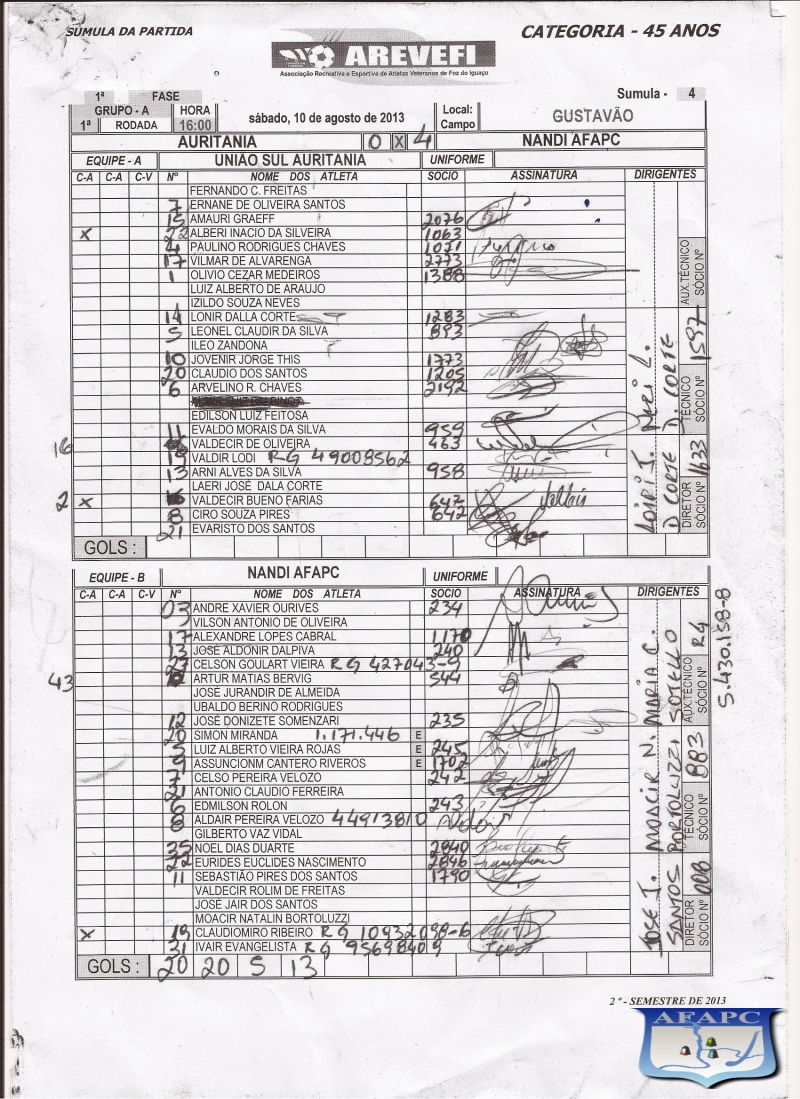 SUMULA DA PARTIDA
CATEGORIA - 45 ANOS
AREVEFI
Associação Recreativa e Esportiva de Atletas Veteranos de Foz do Iguaçu
1ª FASE Sumula - 4
GRUPO - A HORA sábado, 10 de agosto de 2013 Local: GUSTAVÃO
1ª RODADA 16:00 Campo
AURITANIA 0 X 4 NANDI AFAPC
EQUIPE - A UNIAO SUL AURITANIA UNIFORME
C-A C-A C-V Nº NOME DOS ATLETA SOCIO ASSINATURA DIRIGENTES
FERNANDO C. FREITAS
7 ERNANE DE OLIVEIRA SANTOS
15 AMAURI GRAEFF 2076
X 22 ALBERI INACIO DA SILVEIRA 1063
4 PAULINO RODRIGUES CHAVES 1071
17 VILMAR DE ALVARENGA 2773
1 OLIVIO CEZAR MEDEIROS 1388
LUIZ ALBERTO DE ARAUJO
IZILDO SOUZA NEVES
14 LONIR DALLA CORTE 1283
5 LEONEL CLAUDIR DA SILVA 893
ILEO ZANDONA
10 JOVENIR JORGE THIS 1773
20 CLAUDIO DOS SANTOS 1205
6 ARVELINO R. CHAVES 2192
EDILSON LUIZ FEITOSA
11 EVALDO MORAIS DA SILVA 959
16 VALDECIR DE OLIVEIRA 463
19 VALDIR LODI RG 49008562
13 ARNI ALVES DA SILVA 958
LAERI JOSÉ DALA CORTE
2 X VALDECIR BUENO FARIAS 647
8 CIRO SOUZA PIRES 642
21 EVARISTO DOS SANTOS
GOLS :
LOIRI J. NERI L.
D CORTE D. CORTE
DIRETOR SÓCIO Nº 1633
TÉCNICO SÓCIO Nº 1597
AUX.TÉCNICO SÓCIO Nº
EQUIPE - B NANDI AFAPC UNIFORME
C-A C-A C-V Nº NOME DOS ATLETA SOCIO ASSINATURA DIRIGENTES
03 ANDRE XAVIER OURIVES 234
VILSON ANTONIO DE OLIVEIRA
17 ALEXANDRE LOPES CABRAL 1170
13 JOSÉ ALDONIR DALPIVA 240
27 CELSON GOULART VIEIRA RG 427043-9
43 ARTUR MATIAS BERVIG 544
JOSÉ JURANDIR DE ALMEIDA
UBALDO BERINO RODRIGUES
12 JOSÉ DONIZETE SOMENZARI 235
20 SIMON MIRANDA 1.171.446 E
5 LUIZ ALBERTO VIEIRA ROJAS 245
9 ASSUNCIONM CANTERO RIVEROS E 1702
7 CELSO PEREIRA VELOZO 242
21 ANTONIO CLAUDIO FERREIRA
6 EDMILSON ROLON 243
8 ALDAIR PEREIRA VELOZO 44913810
GILBERTO VAZ VIDAL
35 NOEL DIAS DUARTE 2840
22 EURIDES EUCLIDES NASCIMENTO 2846
11 SEBASTIÃO PIRES DOS SANTOS 1790
VALDECIR ROLIM DE FREITAS
JOSÉ JAIR DOS SANTOS
MOACIR NATALIN BORTOLUZZI
X 19 CLAUDIOMIRO RIBEIRO RG 10932098-6
31 IVAIR EVANGELISTA RG 95698409
GOLS : 20 20 5 13
JOSE J. MOACIR N. MARIA C.
SANTOS PORTOLUZZI SOTELLO
DIRETOR SÓCIO Nº
TÉCNICO SÓCIO Nº 883
AUX.TÉCNICO SÓCIO Nº RG
5.430.158-8
2º - SEMESTRE DE 2013
AFAPC